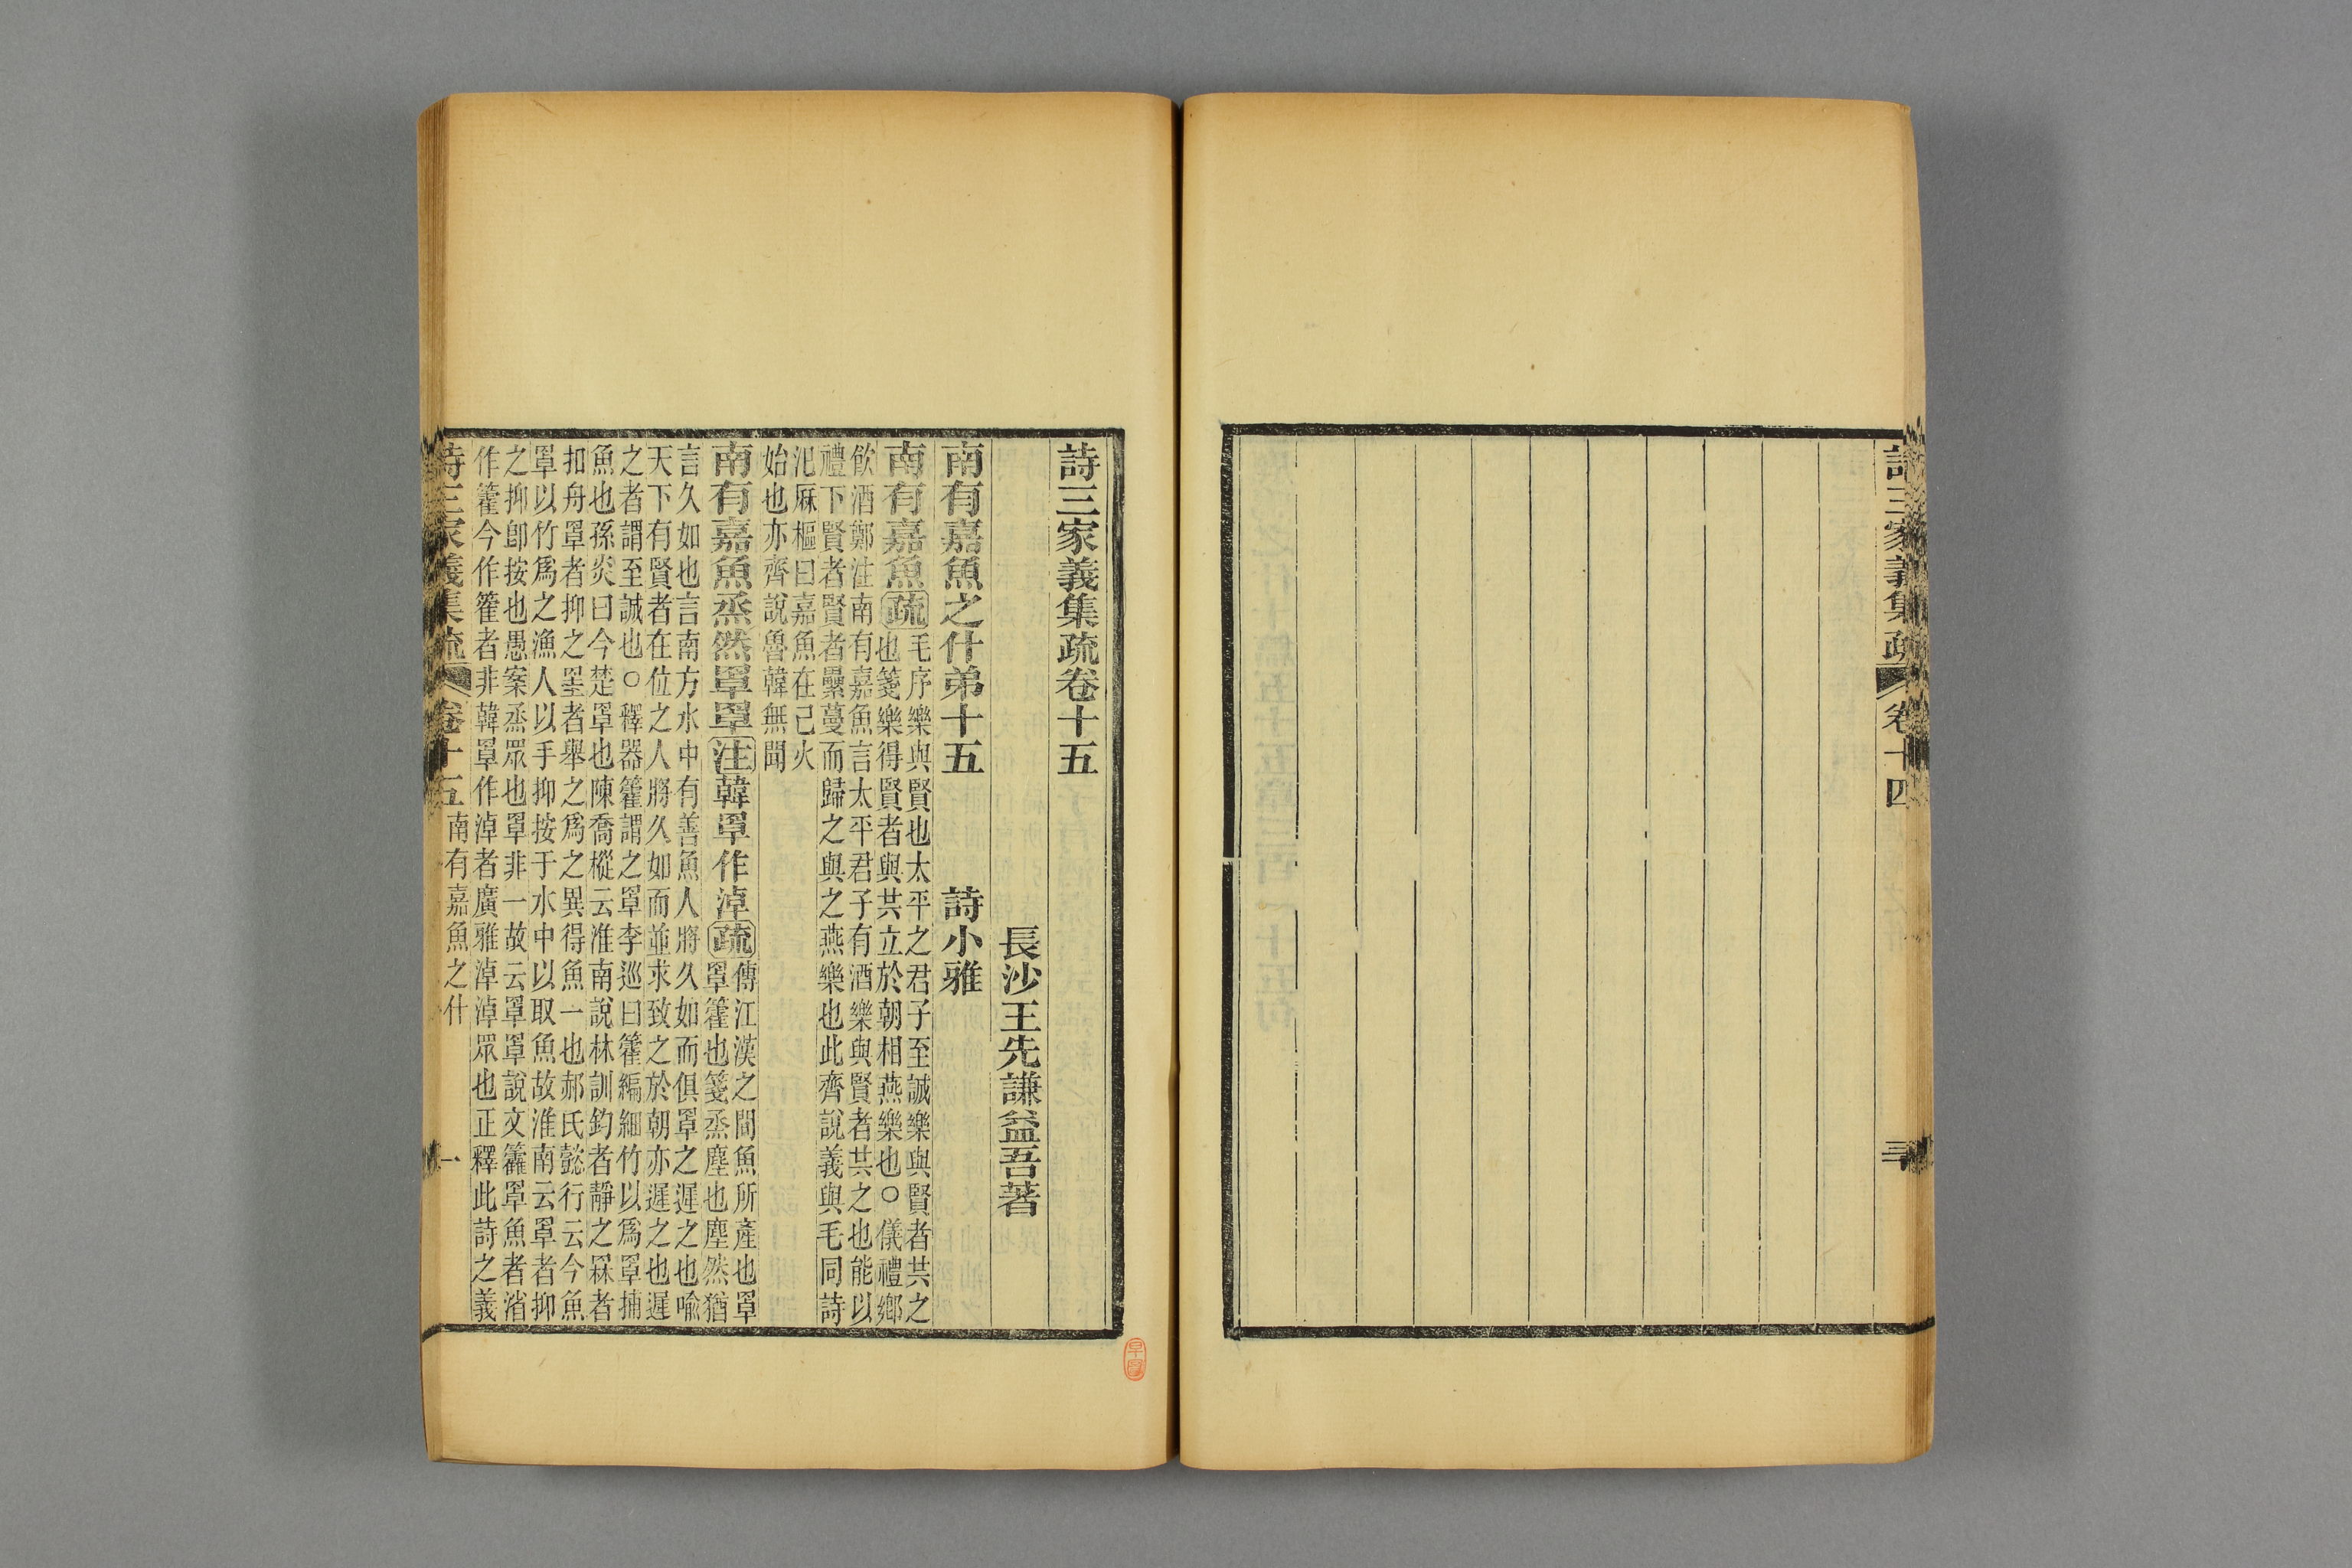 詩三家義集疏 卷十四
三十
詩三家義集疏卷十五
長沙王先謙益吾著
南有嘉魚之什弟十五 詩小雅
南有嘉魚疏
毛序樂與賢也太平之君子至誠樂與賢者共之
也箋樂得賢者與共立於朝相燕樂也○儀禮鄉
飲酒鄭注南有嘉魚言太平君子有酒樂與賢者共之也能以
禮下賢者賢者纍蔓而歸之與之燕樂也此齊說義與毛同詩
汜厤樞曰嘉魚在巳火
始也亦齊說魯韓無聞
南有嘉魚烝然罩罩注韓罩作淖疏
傳江漢之間魚所產也罩
罩籗也箋烝塵也塵然猶
言久如也言南方水中有善魚人將久如而俱罩之遲之也喩
天下有賢者在位之人將久如而並求致之於朝亦遲之也遲
之者謂至誠也○釋器籗謂之罩李巡曰籗編細竹以爲罩捕
魚也孫炎曰今楚罩也陳喬樅云淮南說林訓釣者靜之罧者
扣舟罩者抑之罣者舉之爲之異得魚一也郝氏懿行云今魚
罩以竹爲之漁人以手抑按于水中以取魚故淮南云罩者抑
之抑卽按也愚案烝眾也罩非一故云罩罩說文籱罩魚者渻
作籗今作篧者非韓罩作淖者廣雅淖淖眾也正釋此詩之義
詩三家義集疏 卷十五 南有嘉魚之什
一